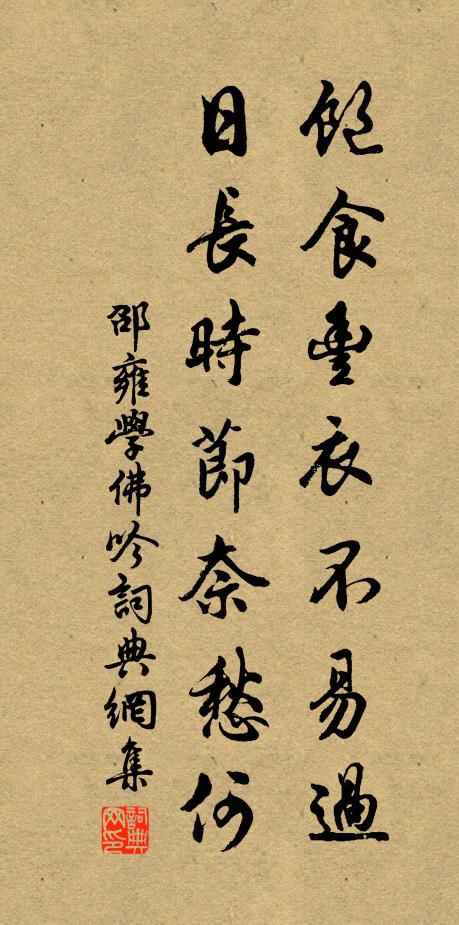 飽食豊衣不易過
日長時節奈愁何
邵雍學佛吟詞典網集
詞典
网印